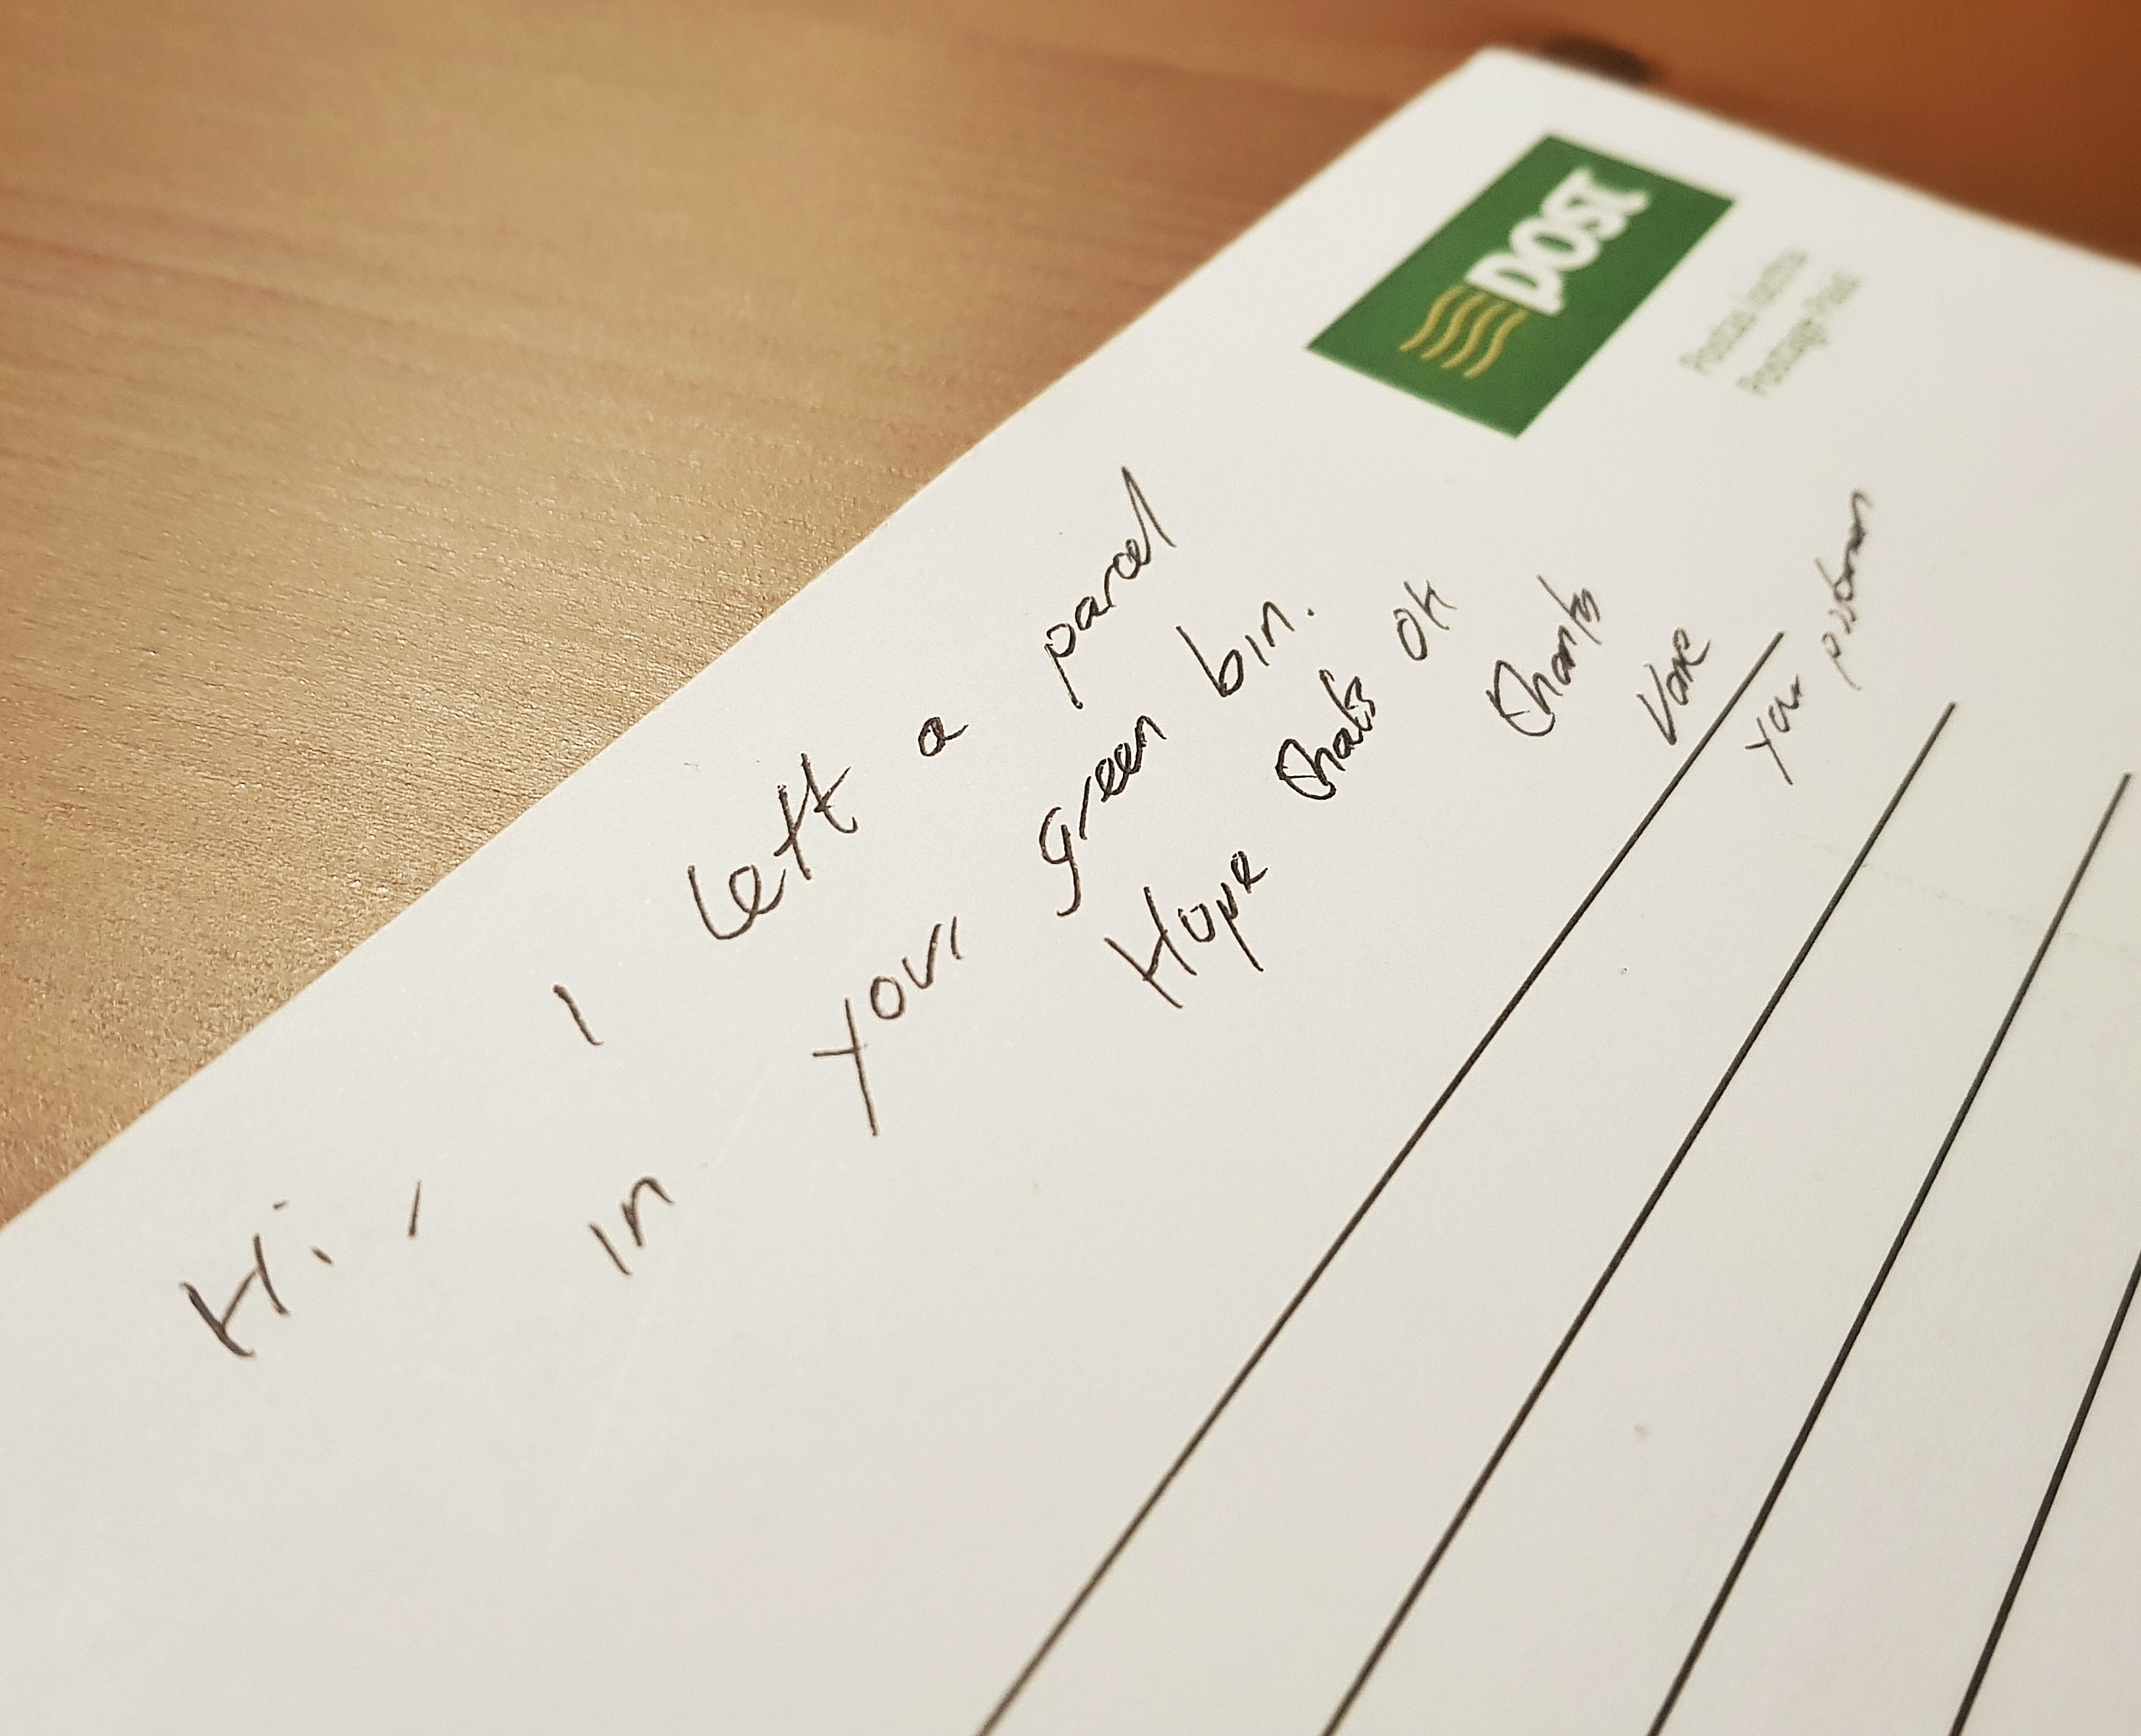 post
Postas Íoctha
Postage Paid
Hi, I left a parcel
in your green bin.
Hope that's OK
Thanks
Your postman